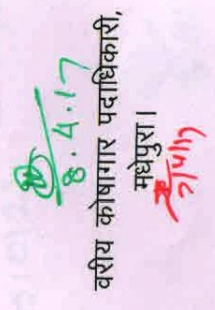 8.4.17
वरीय कोषागार पदाधिकारी,
मधेपुरा।